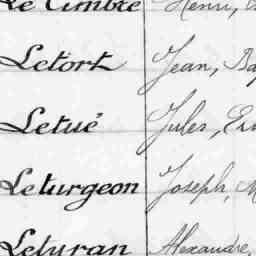 Le Cimbre Henri,
Letort Jean, Bap
Letué Jules, Ern
Leturgeon Joseph, M
Letyran Alexandre,